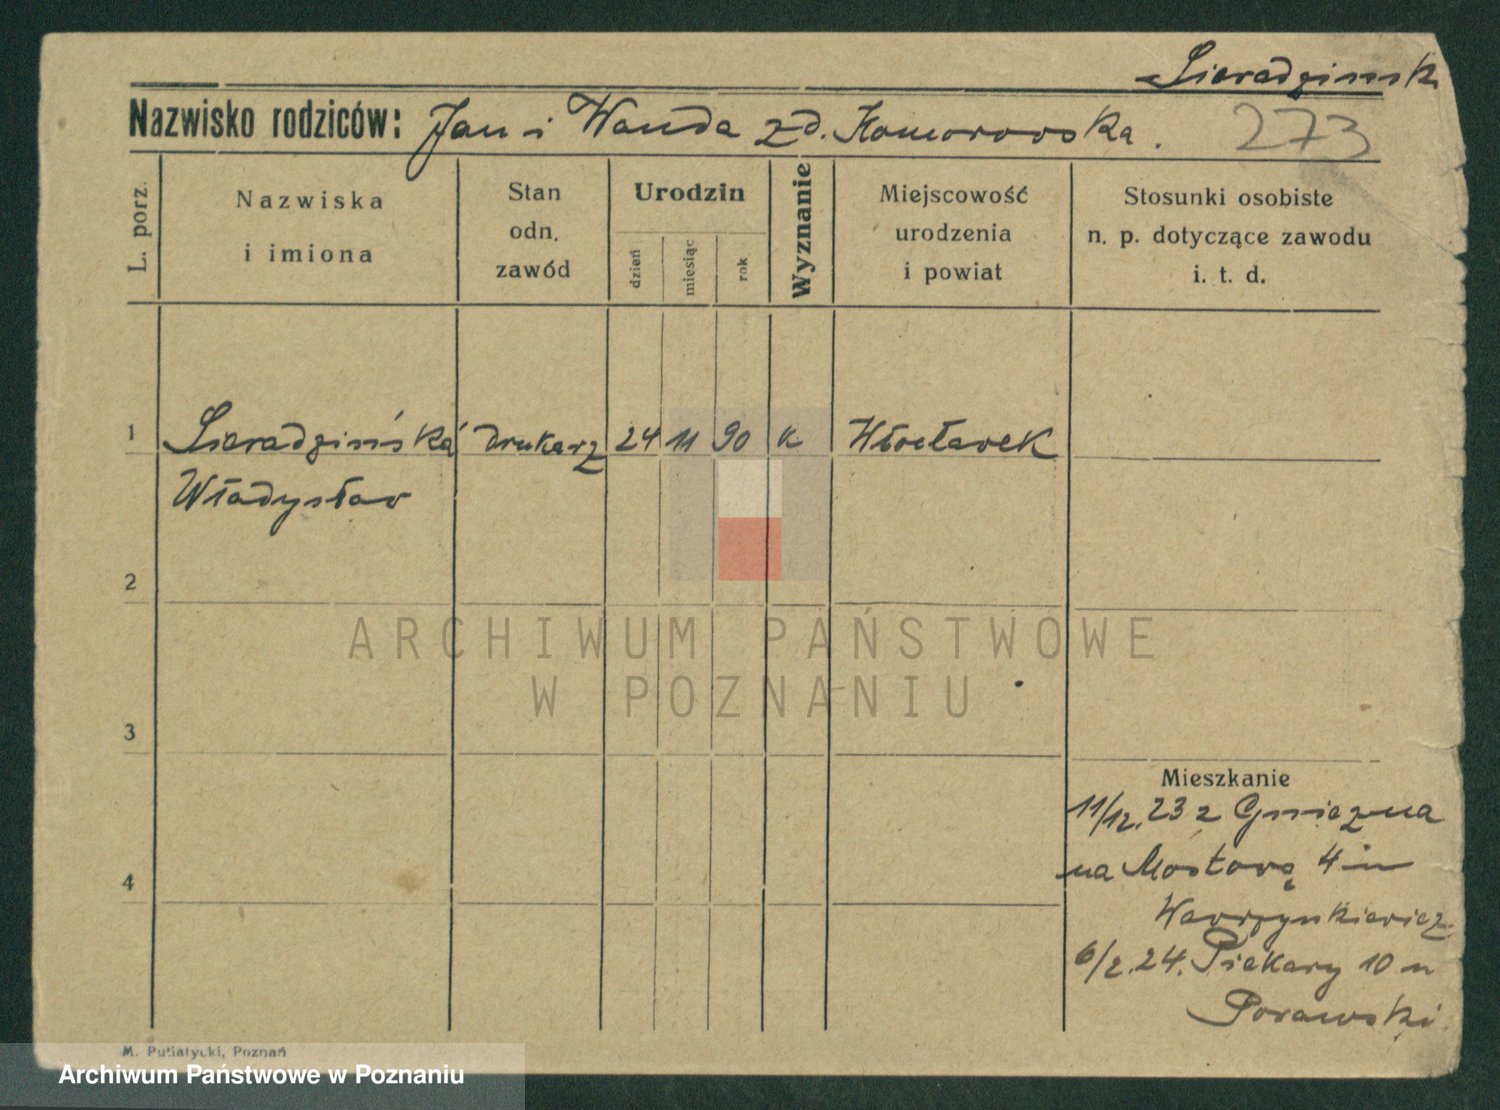 Sieradzinsk
Nazwisko rodziców: Jan i Wanda zd. Komorowska.
273
L. porz.
Nazwiska
i imiona
Stan
odn.
zawód
Urodzin
dzień
miesiąc
rok
Wyznanie
Miejscowość
urodzenia
i powiat
Stosunki osobiste
n. p. dotyczące zawodu
i. t. d.
1 Sieradzińska drukarz 24 11 90 k Włocławek
Władysław
2
ARCHIWUM PAŃSTWOWE
W POZNANIU
3
Mieszkanie
11/12.23 z Gniezna
na Mostową 4 u
4
Wawrzynkiewicz
6/2.24. Piekary 10 u
Porawski
M. Putiatycki, Poznań
Archiwum Państwowe w Poznaniu